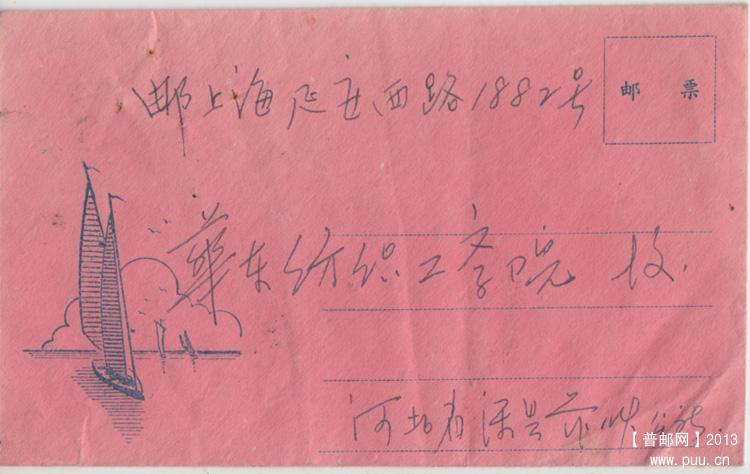 邮上海延安西路1882号
邮 票
华东纺织工学院 收.
河北省深县
【普邮网】2013
www.puu.cn